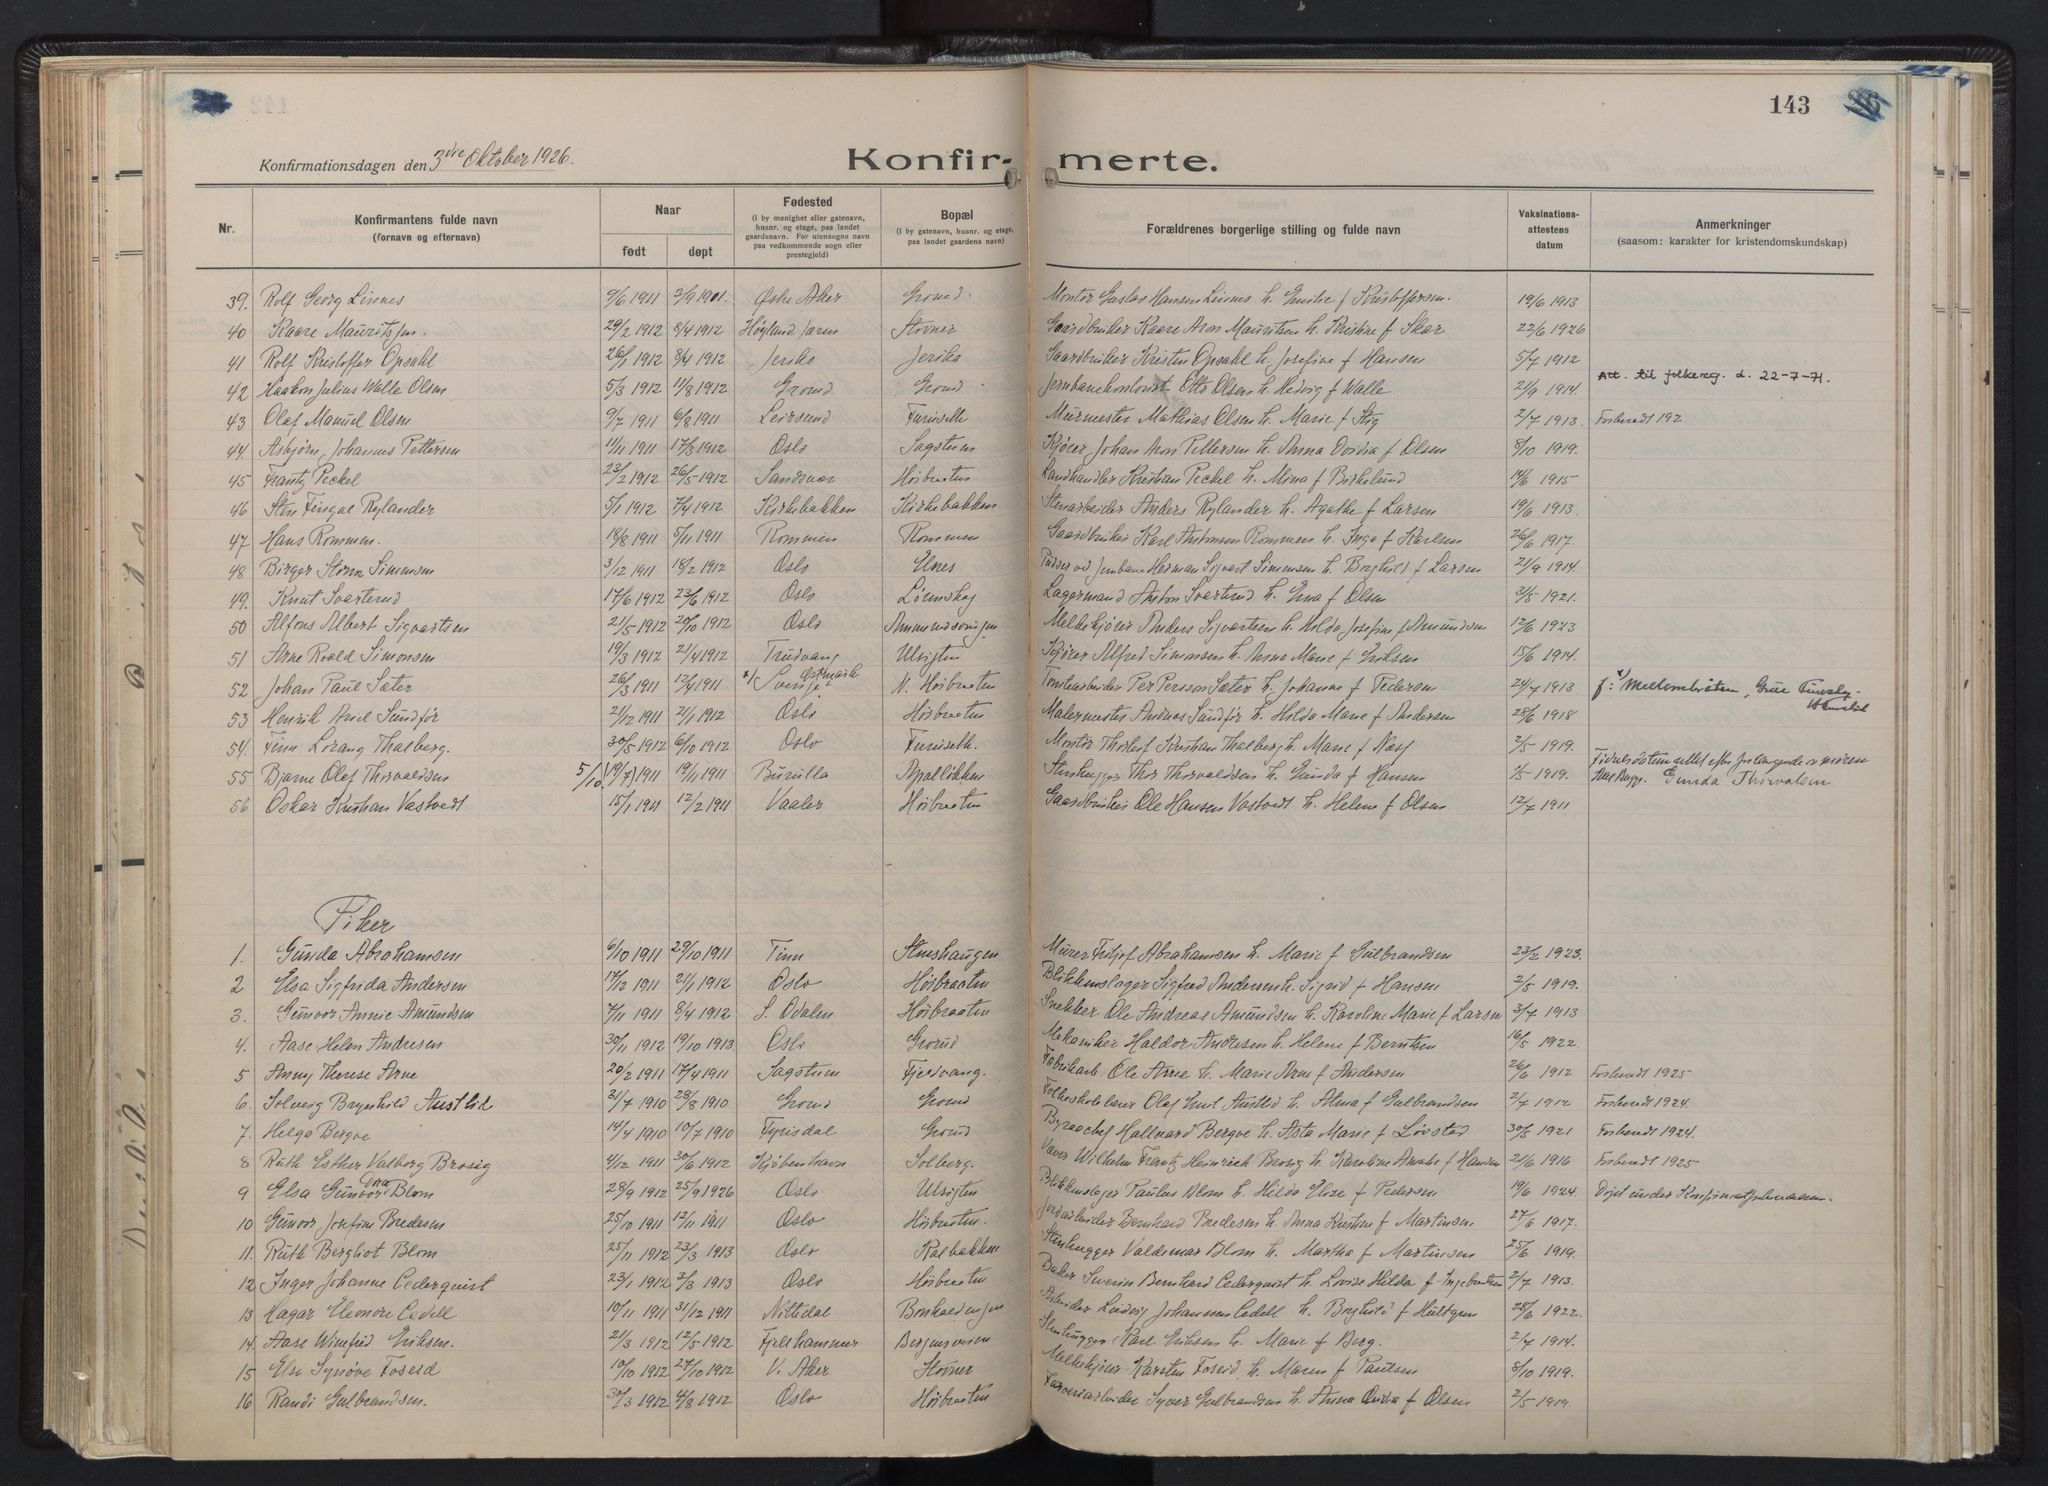 143
Konfirmationsdagen den 3die Oktober 1926.
Konfir- merte.
Nr. Konfirmantens fulde navn (fornavn og efternavn) Naar født døpt Fødested (i by menighet eller gatenavn, husnr. og etage, paa landet gaardsnavn. For utensogns navn paa vedkommende sogn eller prestegjeld) Bopæl (i by gatenavn, husnr. og etage, paa landet gaardens navn) Forældrenes borgerlige stilling og fulde navn Vaksinations-attestens datum Anmerkninger (saasom: karakter for kristendomskundskap)
39. Rolf Georg Linnes 9/6 1911 3/9 1901. Østre Aker Grorud. Montør Gustav Hansen Linnes h. Emilie f Kristoffersen. 19/6 1913
40 Kaare Mauritzen. 29/2 1912 8/4 1912 Høyland Jæren Stovner Gaardbruker Kaare Aron Mauritsen h. Kristine f Skar 22/6 1926
41 Rolf Kristoffer Opsahl 26/1 1912 8/4 1912 Jeriko Jeriko Gaardbruker Kristen Opsahl h. Josefine f Hansen 5/7 1912
42 Haakon Julius Walle Olsen 5/3 1912 11/8 1912 Grorud Grorud Otto Olsen h. Hedvig f Walle 21/9 1914. Att. til folkereg. d. 22-7-71.
43 Olaf Manuel Olsen 9/7 1911 6/8 1911 Leirsund Furuseth Murmester Mathias Olsen h. Marie f Stig 2/7 1913. Forberedt 192
44 Asbjørn Johannes Pettersen 11/11 1911 17/3 1912 Oslo Sagstuen Kjører Johan Aron Pettersen h. Anna Ovidia f Olsen 8/10 1919.
45 Frantz Peckel 23/2 1912 26/5 1912 Sandsvær Høibraaten Landhandler Kristian Peckel h. Mina f Birkelund 14/6 1915
46 Sten Fingal Rylander 5/1 1912 7/4 1912 Kirkebakken Kirkebakken Stenarbeider Anders Rylander h. Agathe f Larsen 19/6 1913.
47 Hans Rommen. 18/8 1911 5/11 1911 Rommen Rommen Gaardbruker Karl Antonsen Rommen h. Inga f Karlsen 26/6 1917.
48 Birger Storm Simensen 3/12 1911 18/2 1912 Oslo Elnes Pudser ved Jernbane Herman Sigvart Simensen h. Borghild f Larsen 21/9 1914.
49. Knut Svarterud 17/6 1912 23/6 1912 Oslo Lørenskog Lagermand Anton Svarterud h. Erna f Olsen 3/5 1921.
50 Alfons Albert Sigvartsen 21/5 1912 20/10 1912 Oslo Melkekjører Anders Sigvartsen h. Hilda Josefine f Amundsen 12/6 1923
51 Arne Roald Simonsen 19/3 1912 21/4 1912 Trudvang Utsigten Kjører Alfred Simonsen h. Anna Marie f Eriksen 15/6 1914.
52 Johan Paul Sæter 26/3 1911 12/4 1911 x/ Sverige N. Høibraaten Tomtearbeider Per Persson Sæter h. Johanne f Pedersen 24/7 1913 f: x/
53 Henrik Ariel Sundfør 21/12 1911 21/1 1912 Oslo Høibraaten Malermester Andreas Sundfør h. Hilda Marie f Andersen 28/6 1918
54. Finn Lorang Thalberg. 30/5 1912 6/10 1912 Oslo Furuseth. Montør Thorleif Kristian Thalberg h. Marie f Næss 2/5 1919.
55 Bjarne Olaf Thorvaldsen 5/10 (19/7) 1911 19/11 1911 Burulla Apalløkken Stenhugger Thor Thorvaldsen h. Gunda f Hansen 2/5 1919. Fødselsdatum rettet efter forlangende av moren Gunda Thorvalsen
56 Oskar Kristian Vastvedt 15/1 1911 12/2 1911 Vaaler Høibraaten Gaardbruker Ole Hansen Vastvedt h. Helene f Olsen 12/7 1911
Piker
1. Gunda Abrahamsen 6/10 1911 29/10 1911 Tinn Stenshaugen Murer Fritjof Abrahamsen h. Marie f Gulbrandsen 23/2 1923.
2 Elsa Sigfrida Andersen 17/12 1911 21/1 1912 Oslo Høibraaten Blikkenslager Sigfred Andersen h. Sigrid f Hansen 2/5 1919.
3. Gunvor Annie Amundsen 7/11 1911 8/4 1912 S. Odalen Høibraaten Snekker Ole Andreas Amundsen h. Karoline Marie f Larsen 3/7 1913
4. Aase Helen Andresen 30/11 1912 19/10 1913. Oslo Grorud Mekaniker Haldor Andresen h. Helene f Berntsen 16/5 1922.
5 Anny Therese Arne 20/2 1911 17/4 1911 Sagstuen Fjeldvang. Fabrikarb. Ole Arne h. Marie Arne f Andersen 26/6 1912 Forberedt 1925
6. Solveig Brynhild Austlid 31/7 1910 28/8 1910 Grorud Grorud Folkeskolelærer Olaf Emil Austlid h. Alma f Gulbrandsen 2/7 1912 Forberedt 1924.
7. Helga Bergve 14/4 1910 10/7 1910 Fyrisdal Grorud Hallvard Bergve h. Asta Marie f Løvstad 30/5 1921 Forberedt 1924.
8 Ruth Esther Valborg Brosig 4/12 1911 30/6 1912 Kjøbenhavn Solberg. Væver Wilhelm Frantz Heinrich Brosig h. Karoline Amalie f Hansen 2/6 1916 Forberedt 1925
9 Elsa Gunvor Dora Blom 28/9 1912 25/9 1926 Oslo Utsigten Blikkenslager Paulus Blom h. Hilda Elise f Pedersen 19/6 1924. Døpt under Konfirmantforberedelsen.
10 Gunvor Josefine Bredesen 25/10 1911 12/11 1911 Oslo Høibraaten. Jordarbeider Bernhard Bredesen h. Anna Kristine f Martinsen 27/6 1917.
11. Ruth Bergliot Blom 25/11 1912 23/3 1913 Oslo Kalbakken Stenhugger Valdemar Blom h. Martha f Martinsen 25/6 1919.
12 Inger Johanne Cederquist 23/1 1912 3/3 1913 Oslo Høibraaten Baker Severin Bernhard Cederquist h. Lovise Hilda f Ingebretsen 2/7 1913.
13 Hagar Eleonore Cedell 10/11 1911 31/12 1911 Nittedal Arbeider Ludvig Johanssen Cedell h. Borghild f Hultgren 28/6 1922.
14. Aase Winifred Eriksen. 21/3 1912 12/5 1912 Fjellhammer Bergensveien Stenhugger Karl Eriksen h. Marie f Berg. 2/7 1914.
15 Else Synøve Foseid 10/10 1912 27/10 1912 V. Aker Stovner Melkekjører Karsten Foseid h. Maren f Paulsen 8/10 1919.
16 Randi Gulbrandsen. 30/3 1912 4/8 1912 Oslo Høibraaten Farveriarbeider Syver Gulbrandsen h. Anna Ovidia f Olsen 2/5 1919.